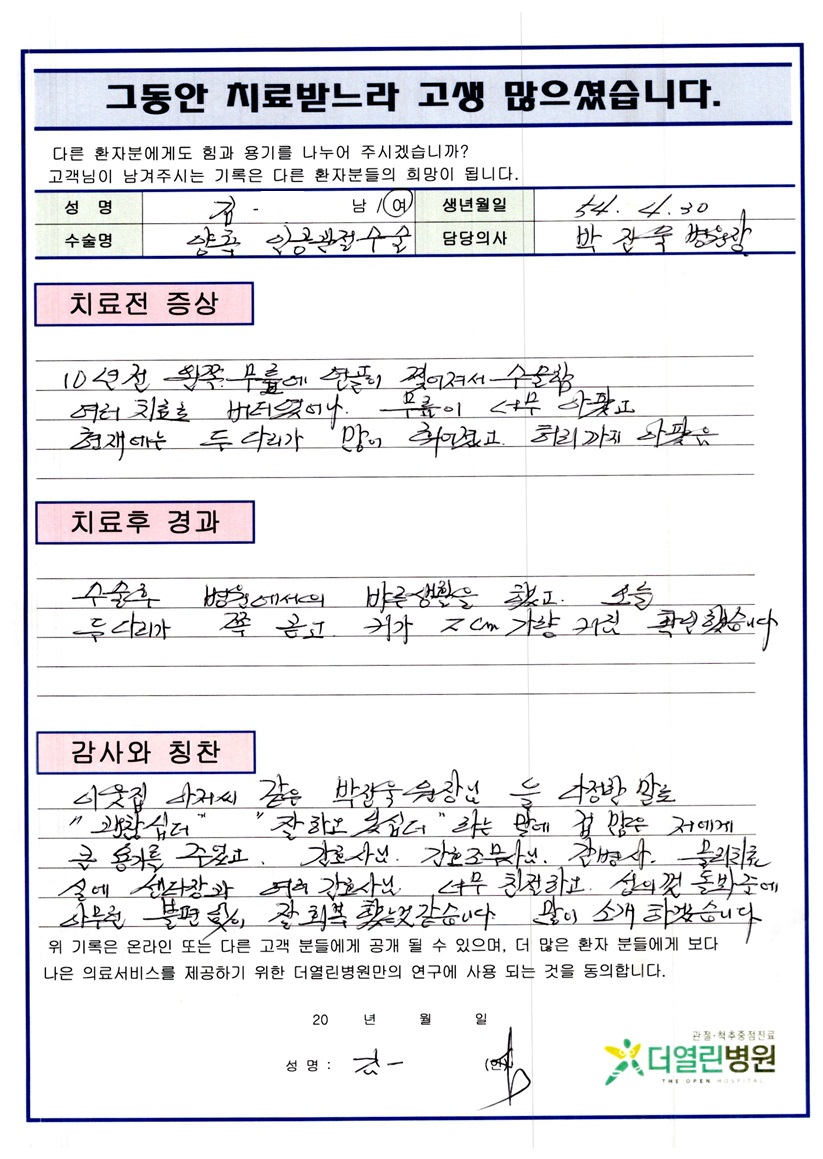 그동안 치료받느라 고생 많으셨습니다.
다른 환자분에게도 힘과 용기를 나누어 주시겠습니까?
고객님이 남겨주시는 기록은 다른 환자분들의 희망이 됩니다.
성 명 김 - 남 / 여 생년월일 54. 4. 30
수술명 양쪽 인공관절수술 담당의사 박 병원장
치료전 증상
10년전 왼쪽 무릎에 연골이 찢어져서 수술함
여러 치료로 버티었어나. 무릎이 너무 아팠고
현재에는 두 다리가 많이 휘어졌고. 허리까지 아팠음
치료후 경과
수술후 병원에서의 바른생활을 했고. 오늘
두 다리가 쭉 곧고. 키가 7cm 가량 커진 확인했습니다
감사와 칭찬
이웃집 아저씨 같은 원장님 늘 다정한 말로
"괜찮심더" "잘하고 있심더" 하는 말에 겁 많은 저에게
큰 용기를 주었고. 간호사님. 간호조무사님. 간병사. 물리치료
실에 센타장과 여러 간호사님. 너무 친절하고. 성의껏 돌봐준데
아무런 불편 없이 잘 회복 했는것 같습니다 많이 소개 하겠습니다
위 기록은 온라인 또는 다른 고객 분들에게 공개 될 수 있으며, 더 많은 환자 분들에게 보다
나은 의료서비스를 제공하기 위한 더열린병원만의 연구에 사용 되는 것을 동의합니다.
20 년 월 일
성 명 : 김 - (인)
관절·척추중점진료
더열린병원
THE OPEN HOSPITAL